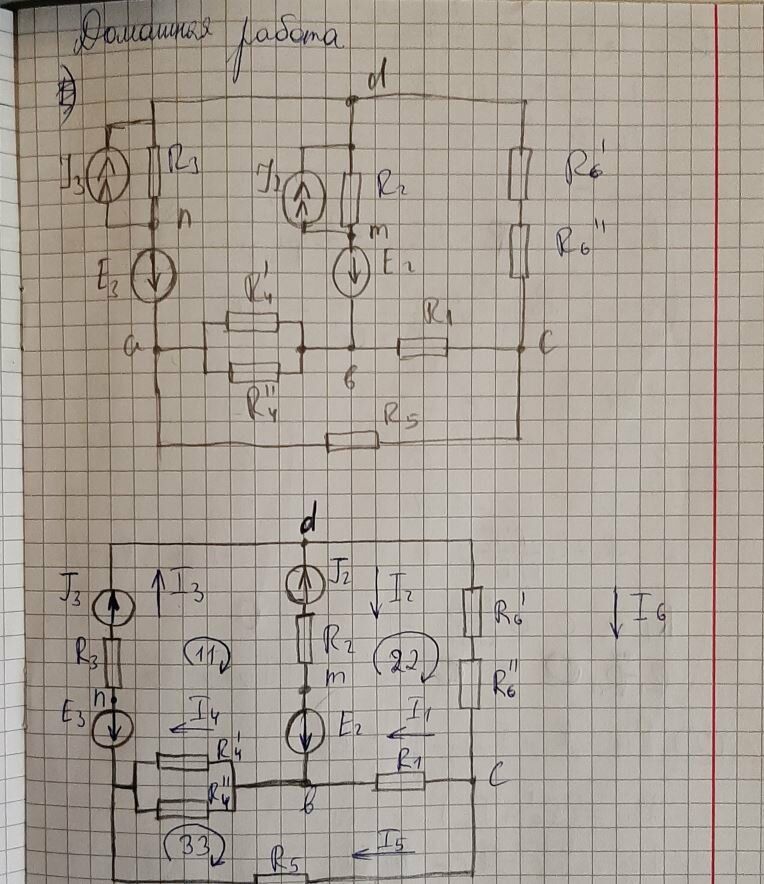 Домашняя работа
1)
d
J₃
R₃
J₂
R₂
R₆'
n
m
R₆''
E₃
E₂
R₄'
R₁
a
в
c
R₄''
R₅
d
J₃
I₃
J₂
I₂
R₆'
I₆
R₃
11
R₂
22
n
m
R₆''
E₃
I₄
E₂
I₁
R₄'
R₁
C
R₄''
в
33
R₅
I₅